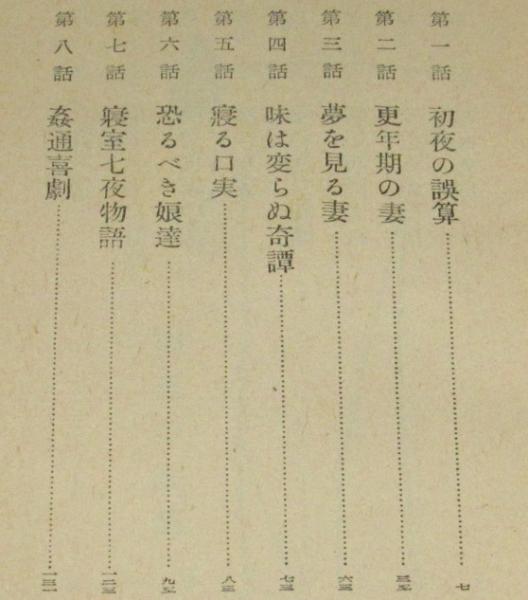 第一話 初夜の誤算 七
第二話 更年期の妻
第三話 夢を見る妻 六三
第四話 味は変らぬ奇譚 七三
第五話 寝る口実 八三
第六話 恐るべき娘達
第七話 寝室七夜物語 一二三
第八話 姦通喜劇 一三一